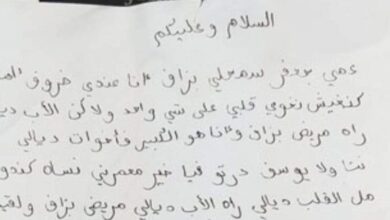 السلام وعليكم
عمي بوعزر سمحلي بزاف انا عندي ظروف
كنعيش نغوي قلبي على شي واحد ولاكن الأب
راه مريض بزاف وأنا هو الكبير فأخوات ديالي
ننا ولا يوسف درتو فيا خير معمرني نساه
مل القلب ديالي راه الأب ديالي مريض بزاف